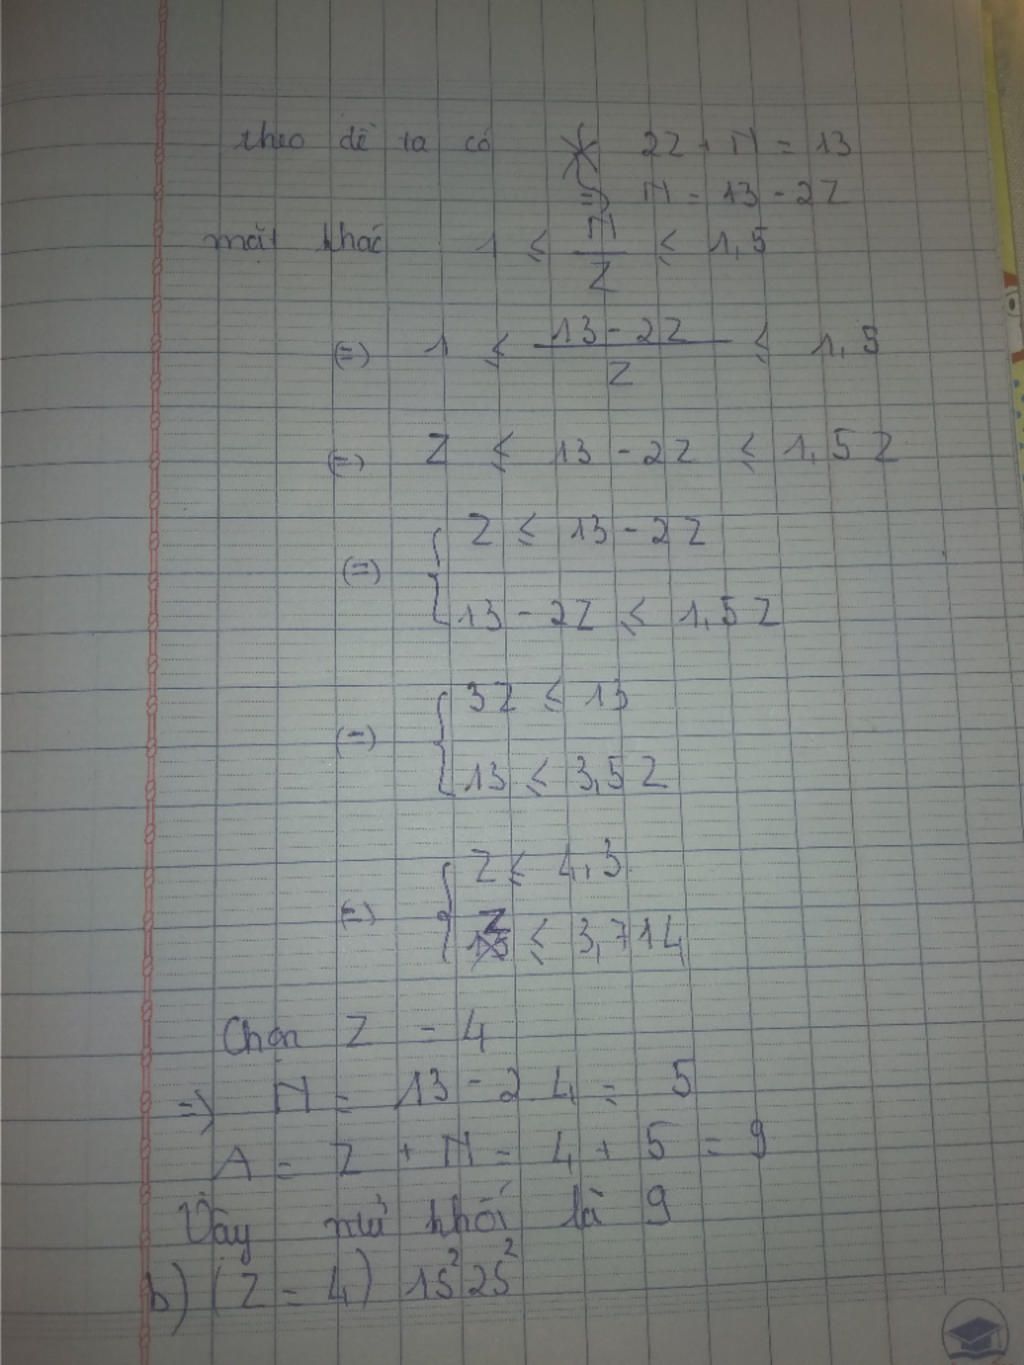 theo đề ta có 2Z + N = 13
=> N = 13 - 2Z
mặt khác 1 ≤ N/Z ≤ 1,5
(=) 1 ≤ (13 - 2Z)/Z ≤ 1,5
(=) Z ≤ 13 - 2Z ≤ 1,5Z
(=) { Z ≤ 13 - 2Z
13 - 2Z ≤ 1,5Z
(=) { 3Z ≤ 13
13 ≤ 3,5Z
(=) { Z ≤ 4,3
Z ≤ 3,714
Chọn Z = 4
=> N = 13 - 2 4 = 5
A = Z + N = 4 + 5 = 9
Vậy số khối là 9
b) (Z = 4) 1S² 2S²